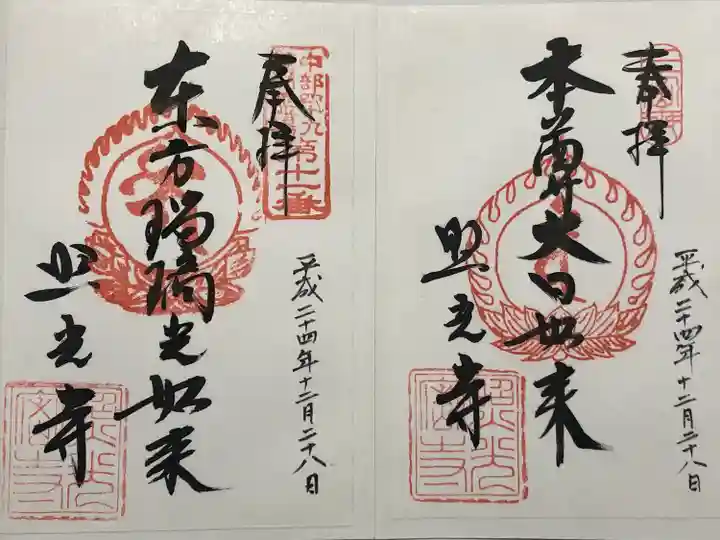 奉拝
平成二十四年十二月二十八日
本尊大日如来
照光寺
中部四十九第十一番
奉拝
平成二十四年十二月二十八日
东方瑠璃光如来
照光寺